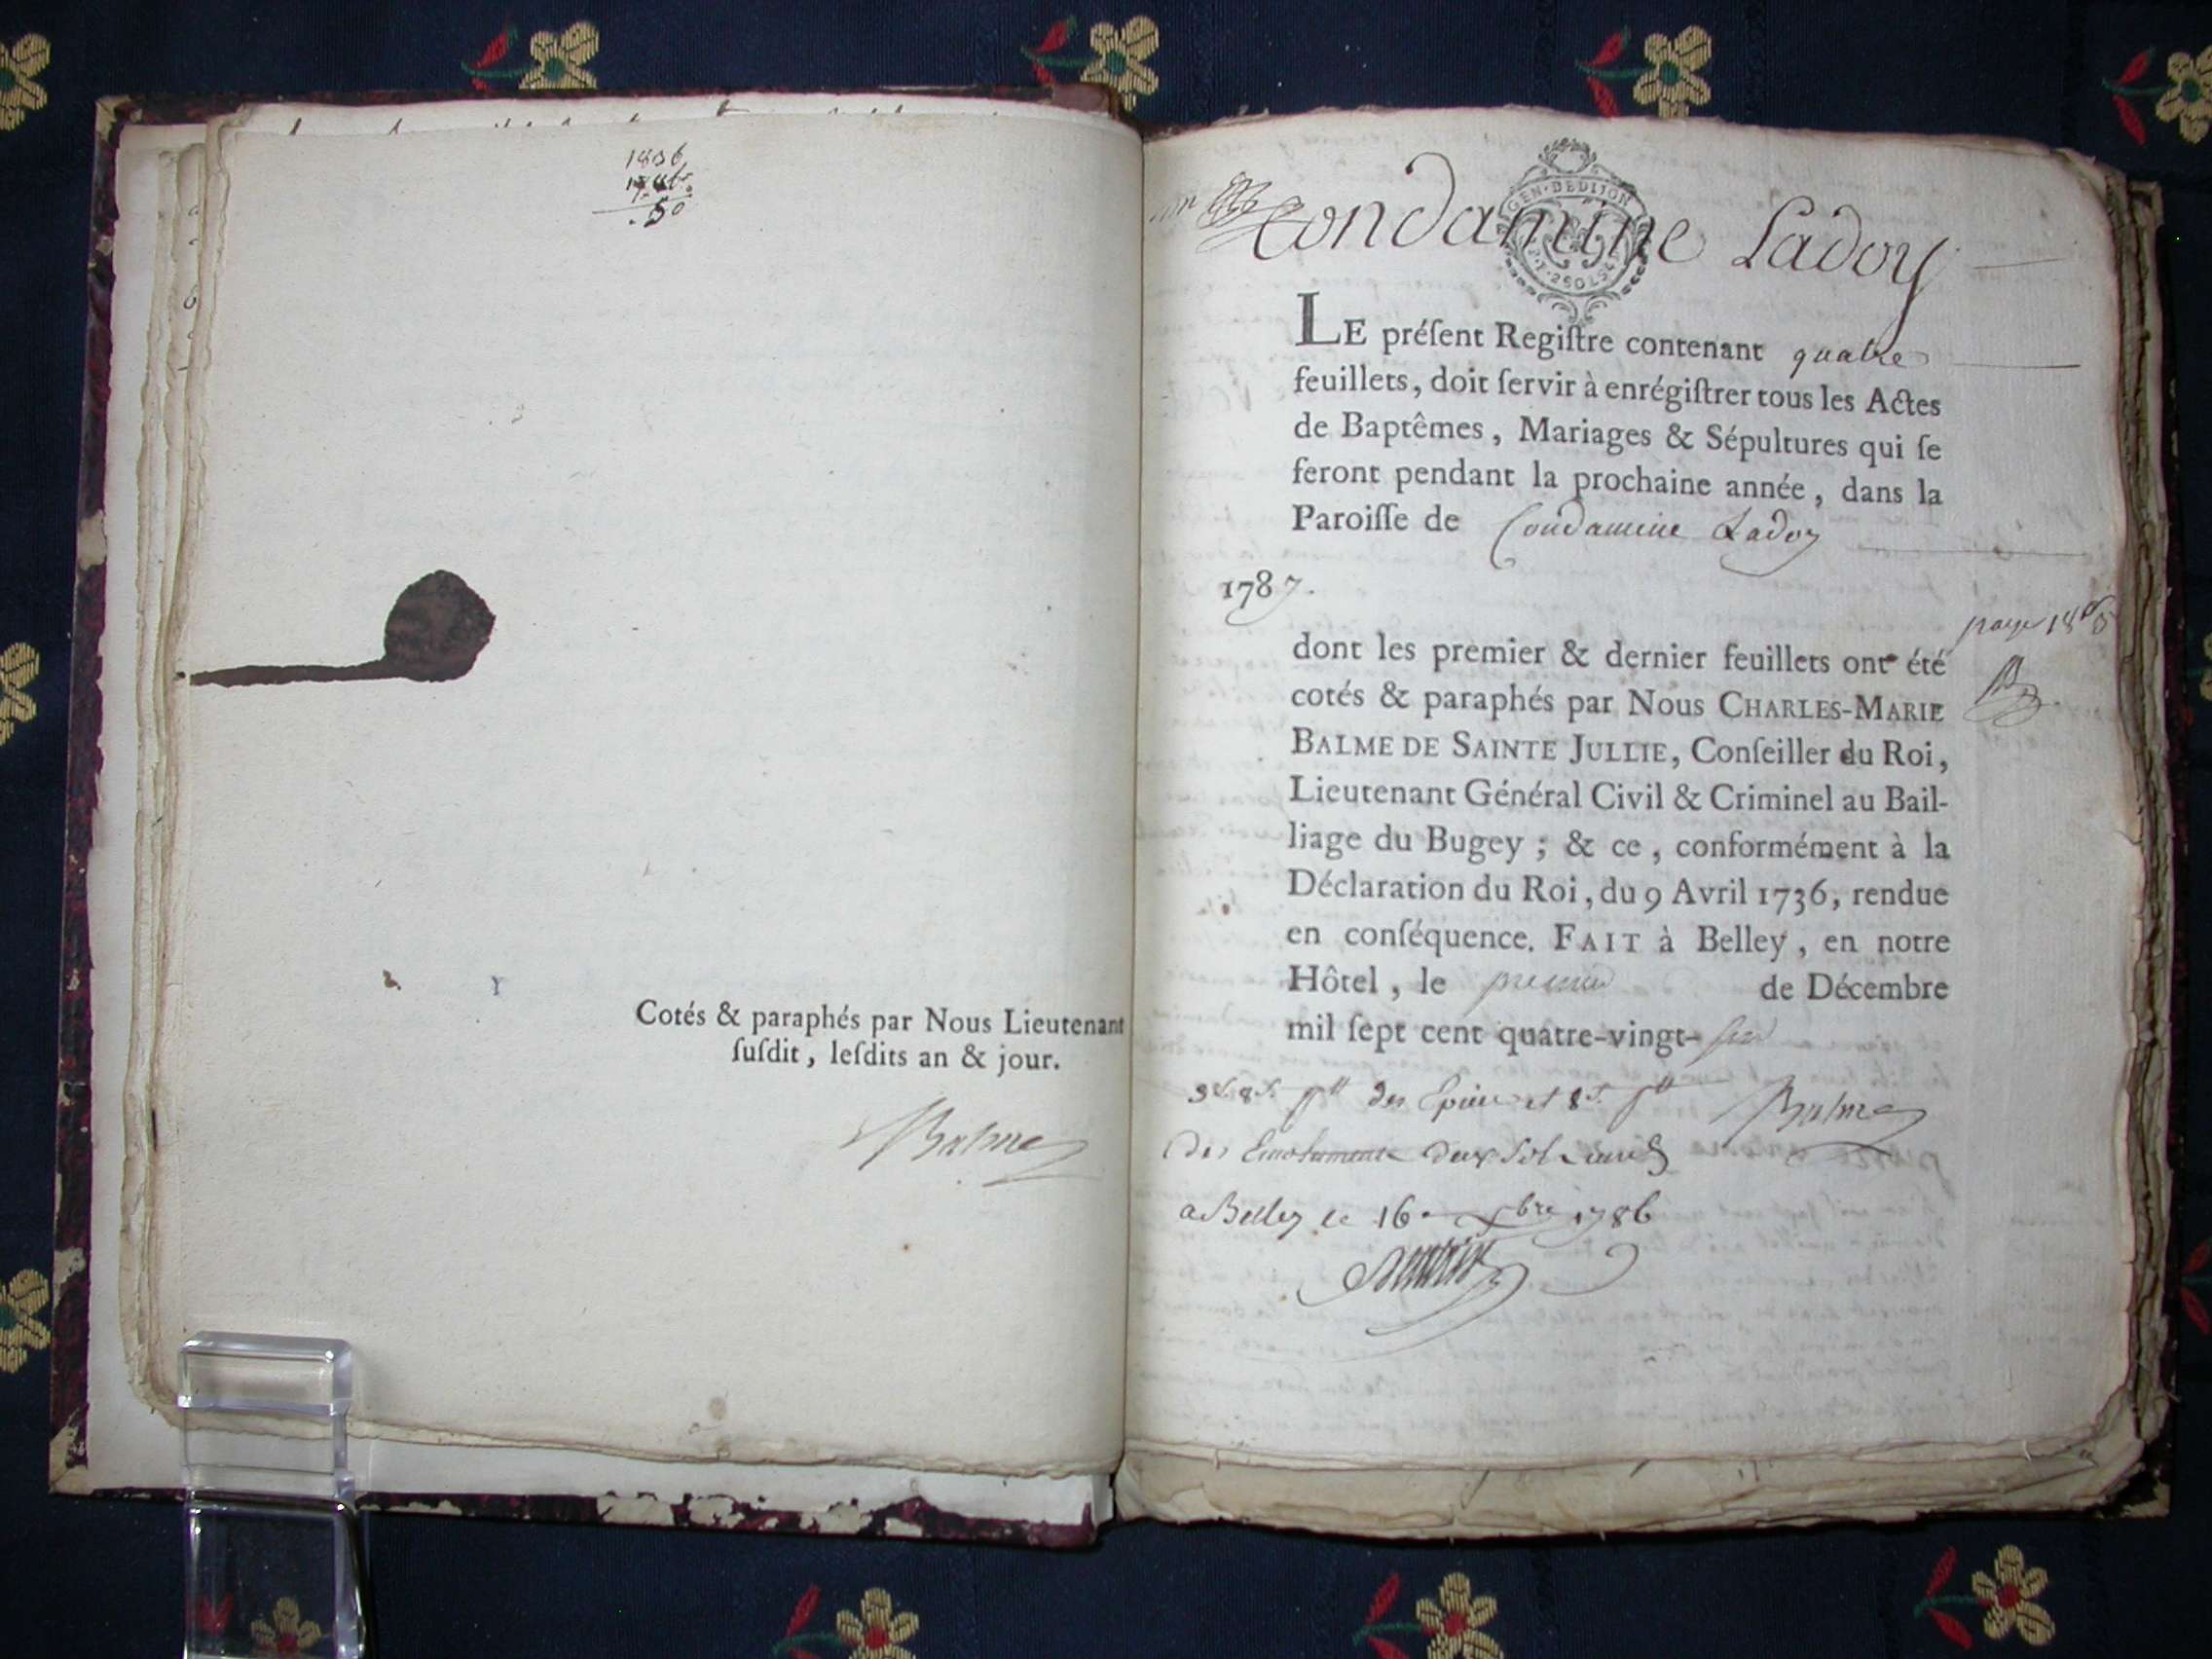 1836
1786
. 50
Cotés & paraphés par Nous Lieutenant
ſuſdit, leſdits an & jour.
Balme
Condamine Ladoy
GEN · DE DIJON
2 SOLS
LE préſent Regiſtre contenant quatre
feuillets, doit ſervir à enrégiſtrer tous les Actes
de Baptêmes, Mariages & Sépultures qui ſe
feront pendant la prochaine année, dans la
Paroiſſe de Condamine Ladoy
1787.
dont les premier & dernier feuillets ont été
cotés & paraphés par Nous CHARLES-MARIE
BALME DE SAINTE JULLIE, Conſeiller du Roi,
Lieutenant Général Civil & Criminel au Bail-
liage du Bugey ; & ce, conformément à la
Déclaration du Roi, du 9 Avril 1736, rendue
en conſéquence. FAIT à Belley, en notre
Hôtel, le premier de Décembre
mil ſept cent quatre-vingt-ſix
des Epices et 8
Balme
Des Emoluments deux sols
a Belley le 16 xbre 1786